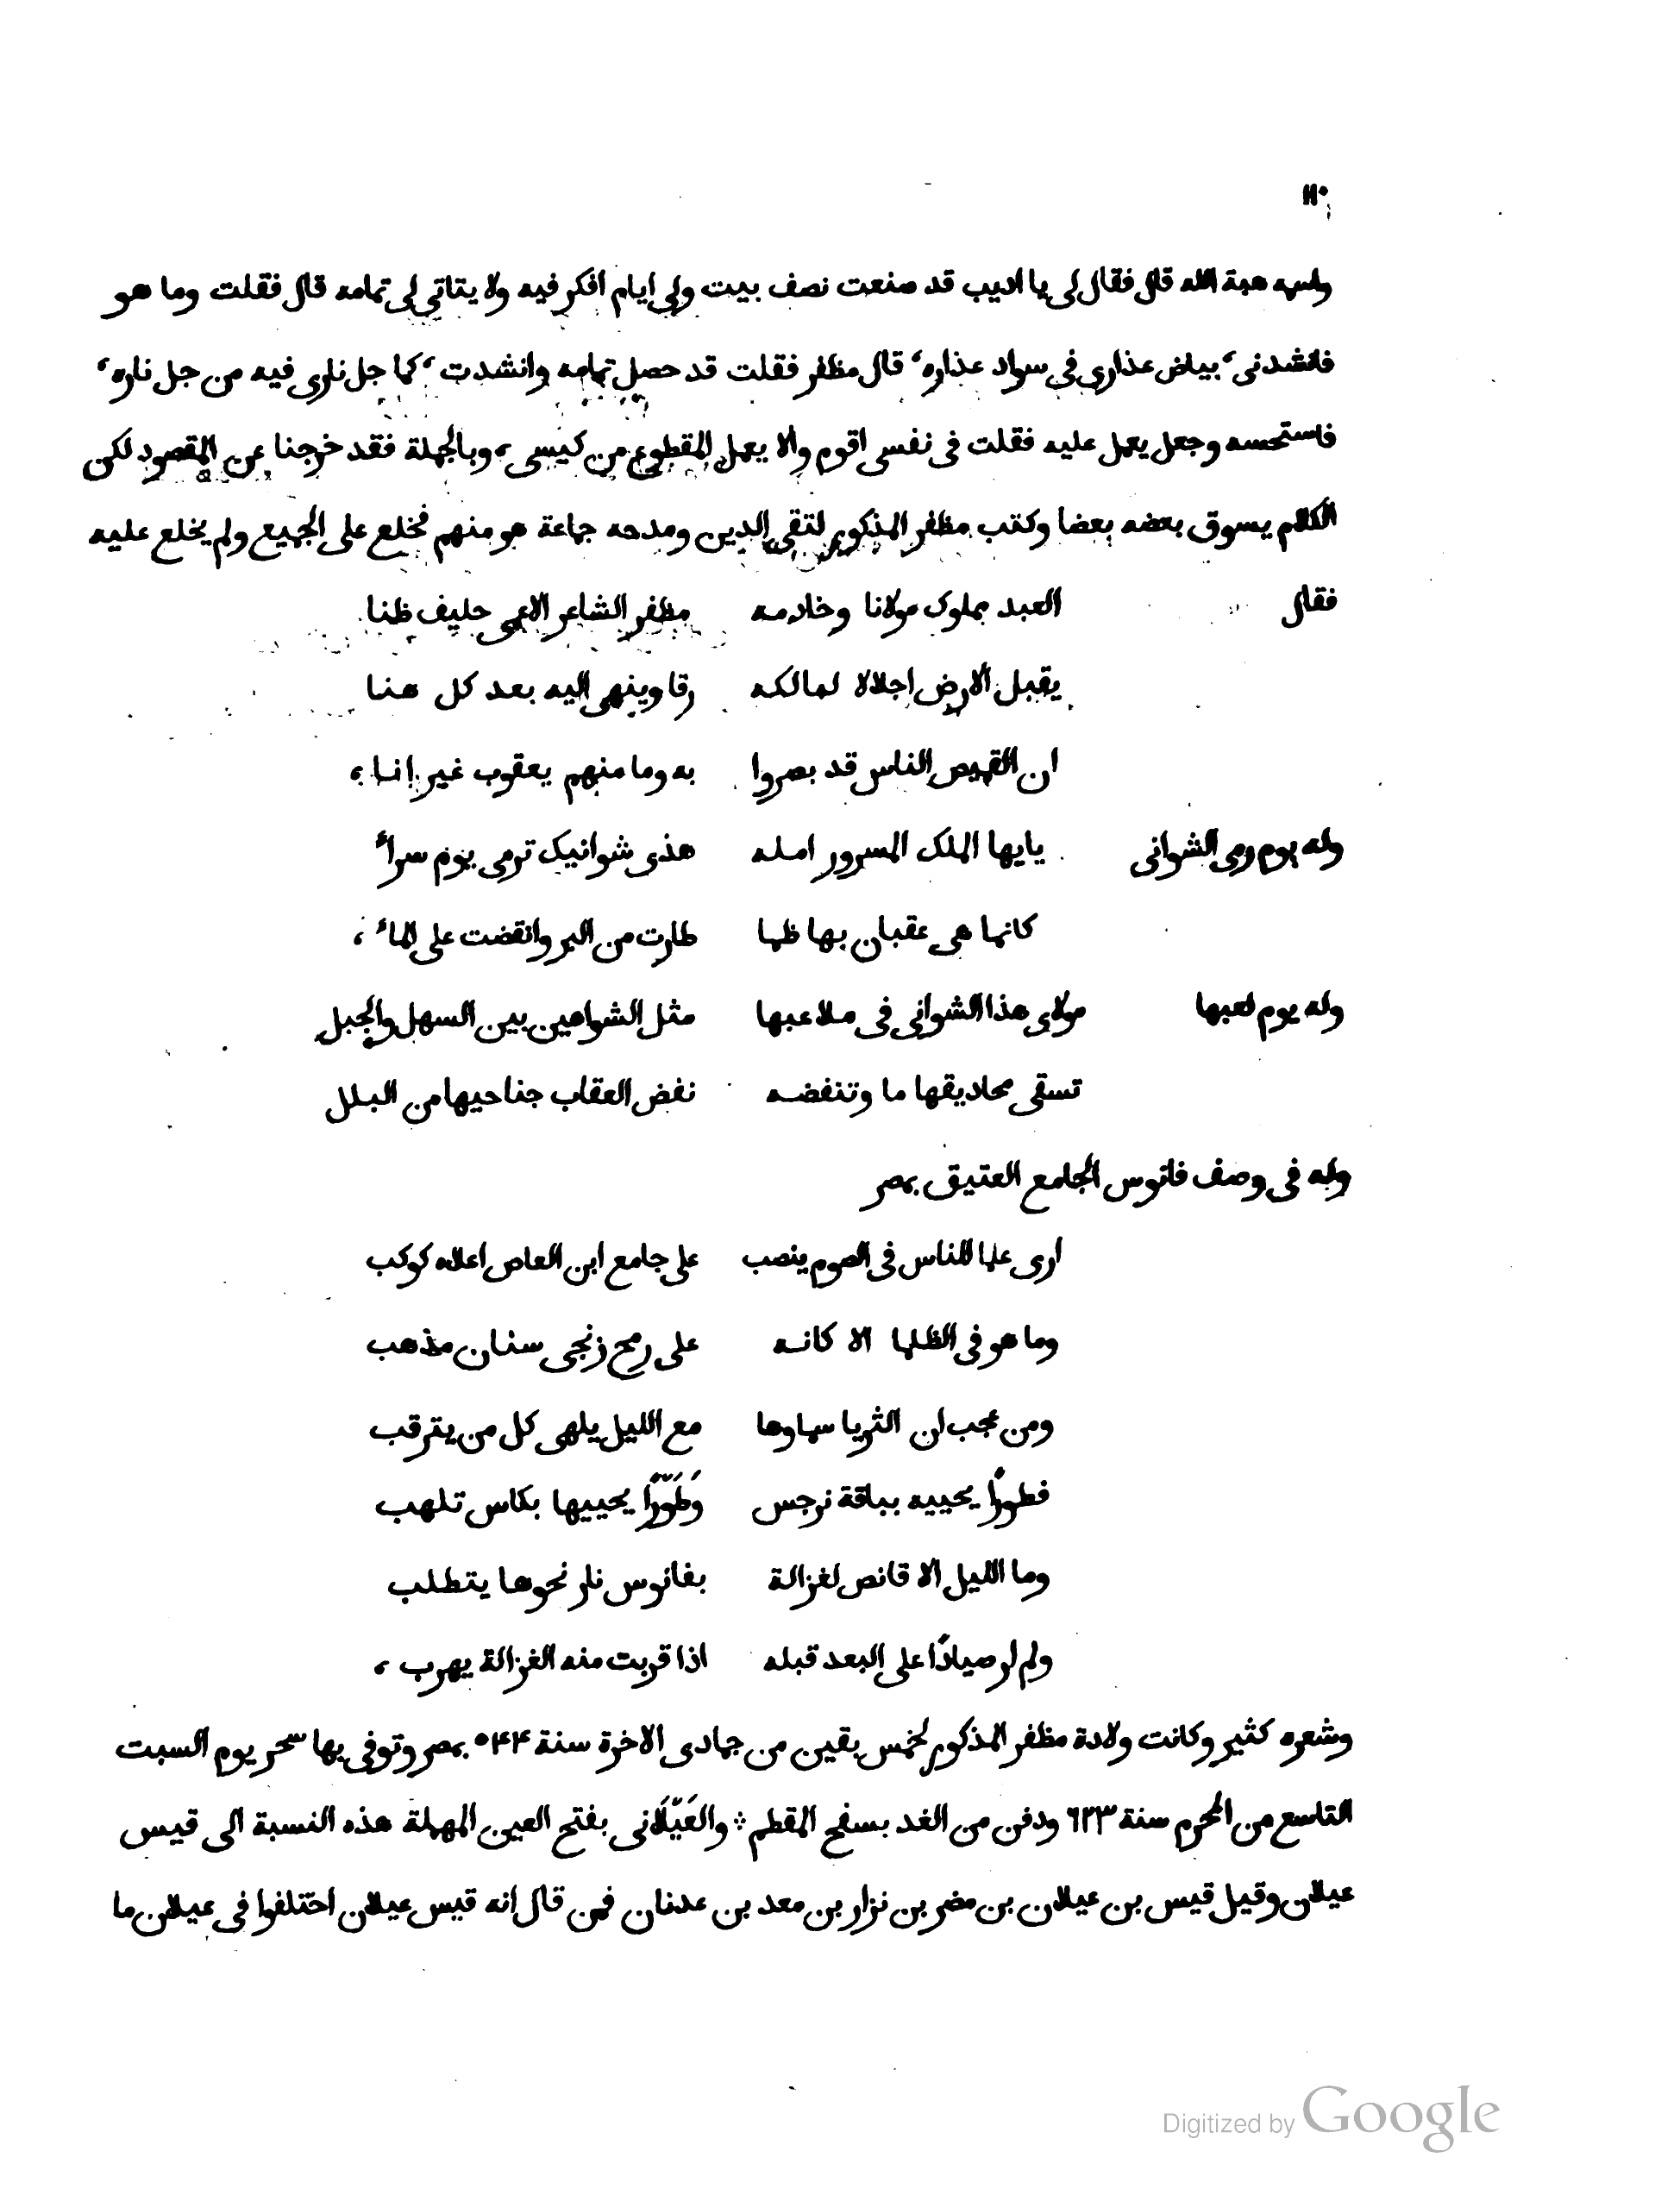 ١١٠
واسمه هبة الله قال فقال لى يا اديب قد صنعت نصف بيت ولى ايام افكر فيه ولا يتاتى لى تمامه قال فقلت وما هو
فانشدنى ، بياض عذارى فى سواد عذاره ، قال مظفر فقلت قد حصل تمامه وانشدت ، كما جل نارى فيه من جل ناره ،
فاستحسنه وجعل يعمل عليه فقلت فى نفسى اقوم والا يعمل المقطوع من كيسى ، وبالجملة فقد خرجنا عن المقصود لكن
الكلام يسوق بعضه بعضا وكتب مظفر المذكور لتقى الدين ومدحه جماعة هو منهم فخلع على الجميع ولم يخلع عليه
فقال العبد مملوك مولانا وخادمه مظفر الشاعر الاعمى حليف ظنا
يقبل الارض اجلالا لمالكه رقا وينهى اليه بعد كل هنا
ان القميص الناس قد بصروا به وما منهم يعقوب غير انا ،
وله يوم رمى الشوانى يايها الملك المسرور امله هذى شوانيك ترمى يوم سراء
كانما هى عقبان بها ظما طارت من البر وانقضت على الماء ،
وله يوم لعبها مولاى هذا الشوانى فى ملاعبها مثل الشواهين بين السهل والجبل
تسقى محاديقها ما وتنفضه نفض العقاب جناحيها من البلل
وله فى وصف فانوس الجامع العتيق بمصر
ارى علما للناس فى الصوم ينصب على جامع ابن العاص اعلاه كوكب
وما هو فى الظلما الا كانه على رمح زنجى سنان مذهب
ومن عجب ان الثريا سماوها مع الليل يلهى كل من يترقب
فطورًا يحييه بباقة نرجس وَطَوَّرًا يحييها بكاس تلهب
وما الليل الا قانص لغزالة بفانوس نار نحوها يتطلب
ولم ار صيادًا على البعد قبله اذا قربت منه الغزالة يهرب ،
وشعره كثير وكانت ولادة مظفر المذكور لخمس بقين من جمادى الاخرة سنة ٥۴۴ بمصر وتوفى بها سحر يوم السبت
التاسع من المحرم سنة ٦٢٣ ودفن من الغد بسفح المقطم ⁘ والعَيْلَانى بفتح العين المهملة هذه النسبة الى قيس
عيلان وقيل قيس بن عيلان بن مضر بن نزار بن معد بن عدنان فمن قال انه قيس عيلان اختلفوا فى عيلان ما
Digitized by Google